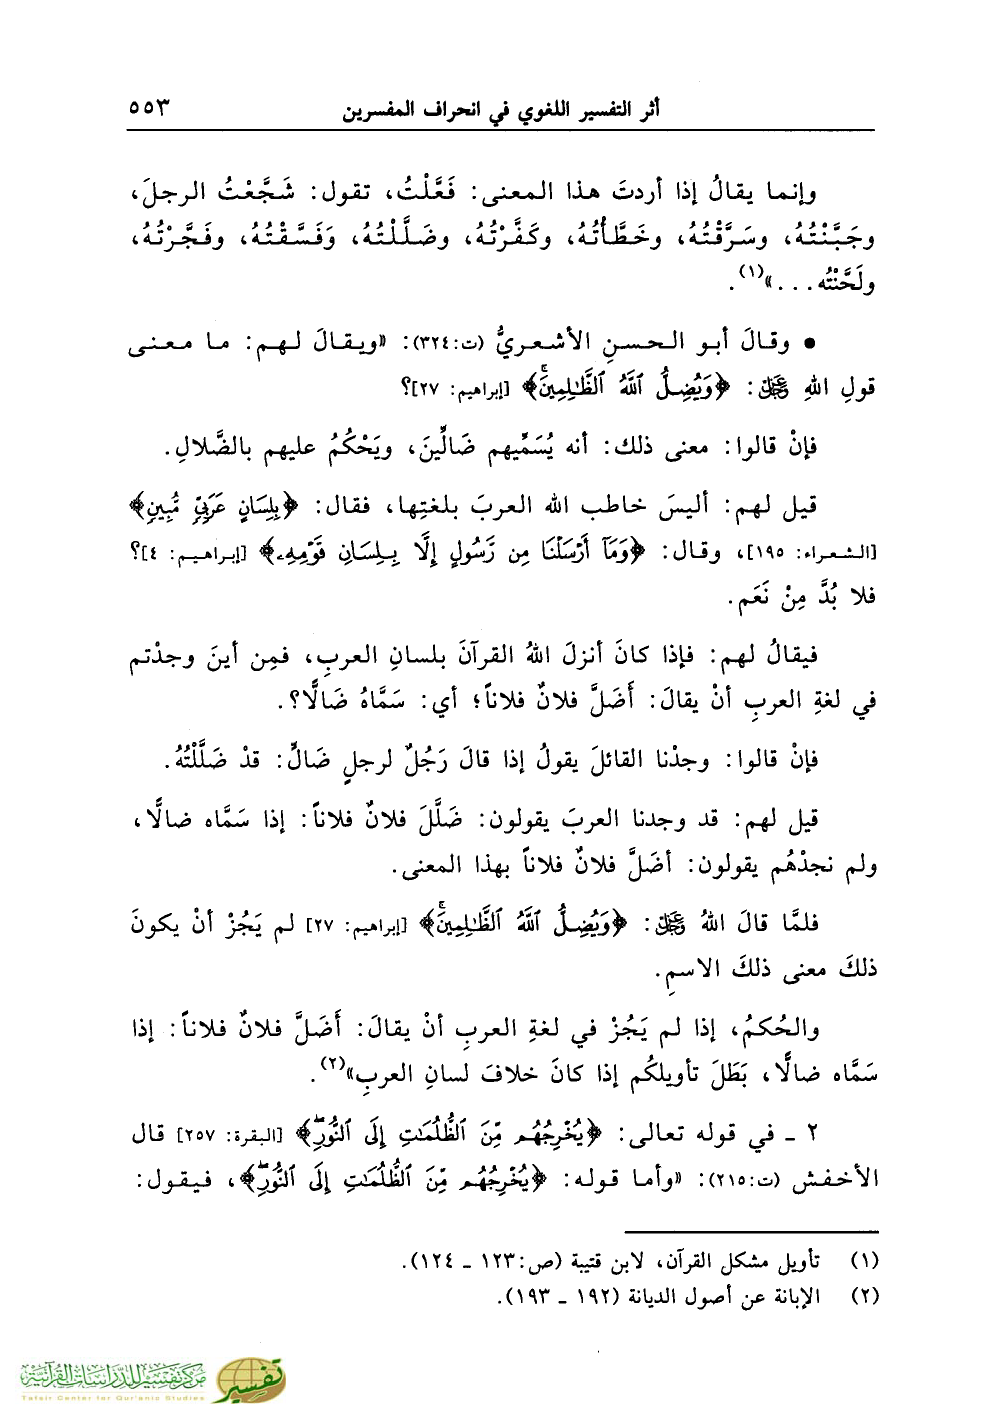 أثر التفسير اللغوي في انحراف المفسرين ٥٥٣
وإنما يقالُ إذا أردتَ هذا المعنى: فَعَّلْتُ، تقول: شَجَّعْتُ الرجلَ،
وجَبَّنْتُهُ، وسَرَّقْتُهُ، وخَطَّأْتُهُ، وكَفَّرْتُهُ، وضَلَّلْتُهُ، وَفَسَّقْتُهُ، وفَجَّرْتُهُ،
ولَحَّنْتُه...»(١).
• وقالَ أبو الحسنِ الأشعريُّ (ت:٣٢٤): «ويقالَ لهم: ما معنى
قولِ اللهِ عز وجل: ﴿وَيُضِلُّ ٱللَّهُ ٱلظَّٰلِمِينَۚ﴾ [إبراهيم: ٢٧]؟
فإنْ قالوا: معنى ذلك: أنه يُسَمِّيهم ضَالِّينَ، ويَحْكُمُ عليهم بالضَّلالِ.
قيل لهم: أليسَ خاطب الله العربَ بلغتِها، فقال: ﴿بِلِسَانٍ عَرَبِيٍّ مُّبِينٍ﴾
[الشعراء: ١٩٥]، وقال: ﴿وَمَآ أَرْسَلْنَا مِن رَّسُولٍ إِلَّا بِلِسَانِ قَوْمِهِۦ﴾ [إبراهيم: ٤]؟
فلا بُدَّ مِنْ نَعَم.
فيقالُ لهم: فإذا كانَ أنزلَ اللهُ القرآنَ بلسانِ العربِ، فمِن أينَ وجدْتم
في لغةِ العربِ أنْ يقالَ: أَضَلَّ فلانٌ فلاناً؛ أي: سَمَّاهُ ضَالًّا؟.
فإنْ قالوا: وجدْنا القائلَ يقولُ إذا قالَ رَجُلٌ لرجلٍ ضَالٍّ: قدْ ضَلَّلْتُهُ.
قيل لهم: قد وجدنا العربَ يقولون: ضَلَّلَ فلانٌ فلاناً: إذا سَمَّاه ضالًّا،
ولم نجدْهُم يقولون: أضَلَّ فلانٌ فلاناً بهذا المعنى.
فلمَّا قالَ اللهُ عز وجل: ﴿وَيُضِلُّ ٱللَّهُ ٱلظَّٰلِمِينَۚ﴾ [إبراهيم: ٢٧] لم يَجُزْ أنْ يكونَ
ذلكَ معنى ذلكَ الاسمِ.
والحُكمُ، إذا لم يَجُزْ في لغةِ العربِ أنْ يقالَ: أَضَلَّ فلانٌ فلاناً: إذا
سَمَّاه ضالًّا، بَطَلَ تأويلكُم إذا كانَ خلافَ لسانِ العربِ»(٢).
٢ ـ في قوله تعالى: ﴿يُخْرِجُهُم مِّنَ ٱلظُّلُمَٰتِ إِلَى ٱلنُّورِۖ﴾ [البقرة: ٢٥٧] قال
الأخفش (ت:٢١٥): «وأما قوله: ﴿يُخْرِجُهُم مِّنَ ٱلظُّلُمَٰتِ إِلَى ٱلنُّورِۖ﴾، فيقول:
(١) تأويل مشكل القرآن، لابن قتيبة (ص:١٢٣ ـ ١٢٤).
(٢) الإبانة عن أصول الديانة (١٩٢ ـ ١٩٣).
مركز تفسير للدراسات القرآنية
Tafsir Center for Qur'anic Studies
تفسير